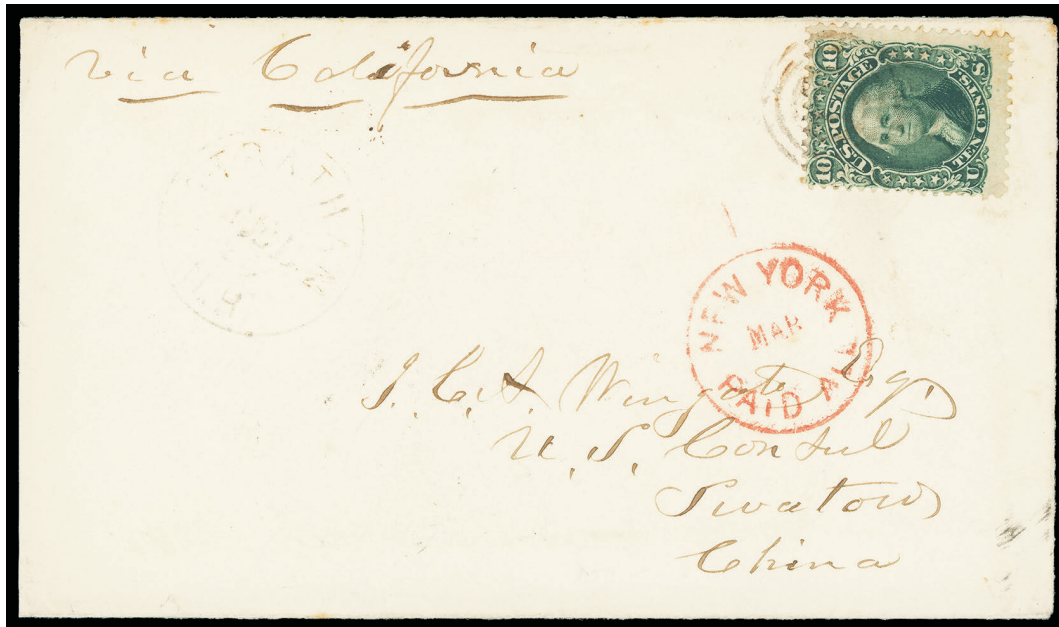 via California
10 10
U.S. POSTAGE
TEN CENTS.
U S
NEW YORK
MAR
PAID ALL
J. C. A. Wingate Esq.
U. S. Consul
Swatow
China